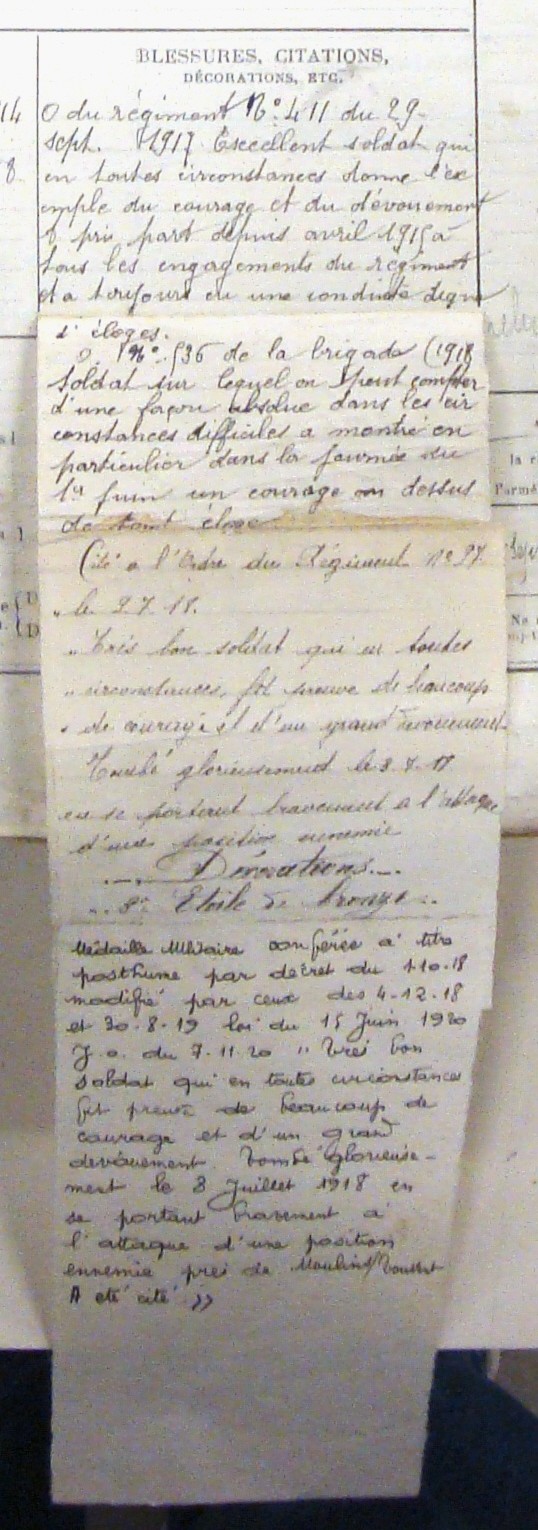 BLESSURES, CITATIONS,
DÉCORATIONS, ETC.
O du régiment No 411 du 29
sept. 1917 Excellent soldat qui
en toutes circonstances donne l'ex
emple du courage et du dévouement
pris part depuis avril 1915 à
tous les engagements du régiment
et a toujours eu une conduite digne
d'éloges.
O. No 536 de la brigade (1918
Soldat sur lequel on peut compter
d'une façon absolue dans les cir
constances difficiles a montré en
particulier dans la journée du
1er juin un courage au dessus
de tout éloge
Cité a l'Ordre du Régiment No 27.
" le 9.7.18.
" Très bon soldat qui en toutes
" circonstances, fit preuve de beaucoup
" de courage et d'un grand dévouement.
Tombé glorieusement le 8.7.18
en se portant bravement a l'attaque
d'une position ennemie
Décorations
Etoile de bronze
Médaille Militaire conférée à titre
posthume par décret du 1-10-18
modifié par ceux des 4-12-18
et 30-8-19 loi du 15 Juin 1920
J.o. du 7-11-20 " Très bon
soldat qui en toutes circonstances
fit preuve de beaucoup de
courage et d'un grand
dévouement. Tombé glorieuse-
ment le 8 Juillet 1918 en
se portant bravement à
l'attaque d'une position
ennemie près de Moulin s/s Touvent
A été cité. "